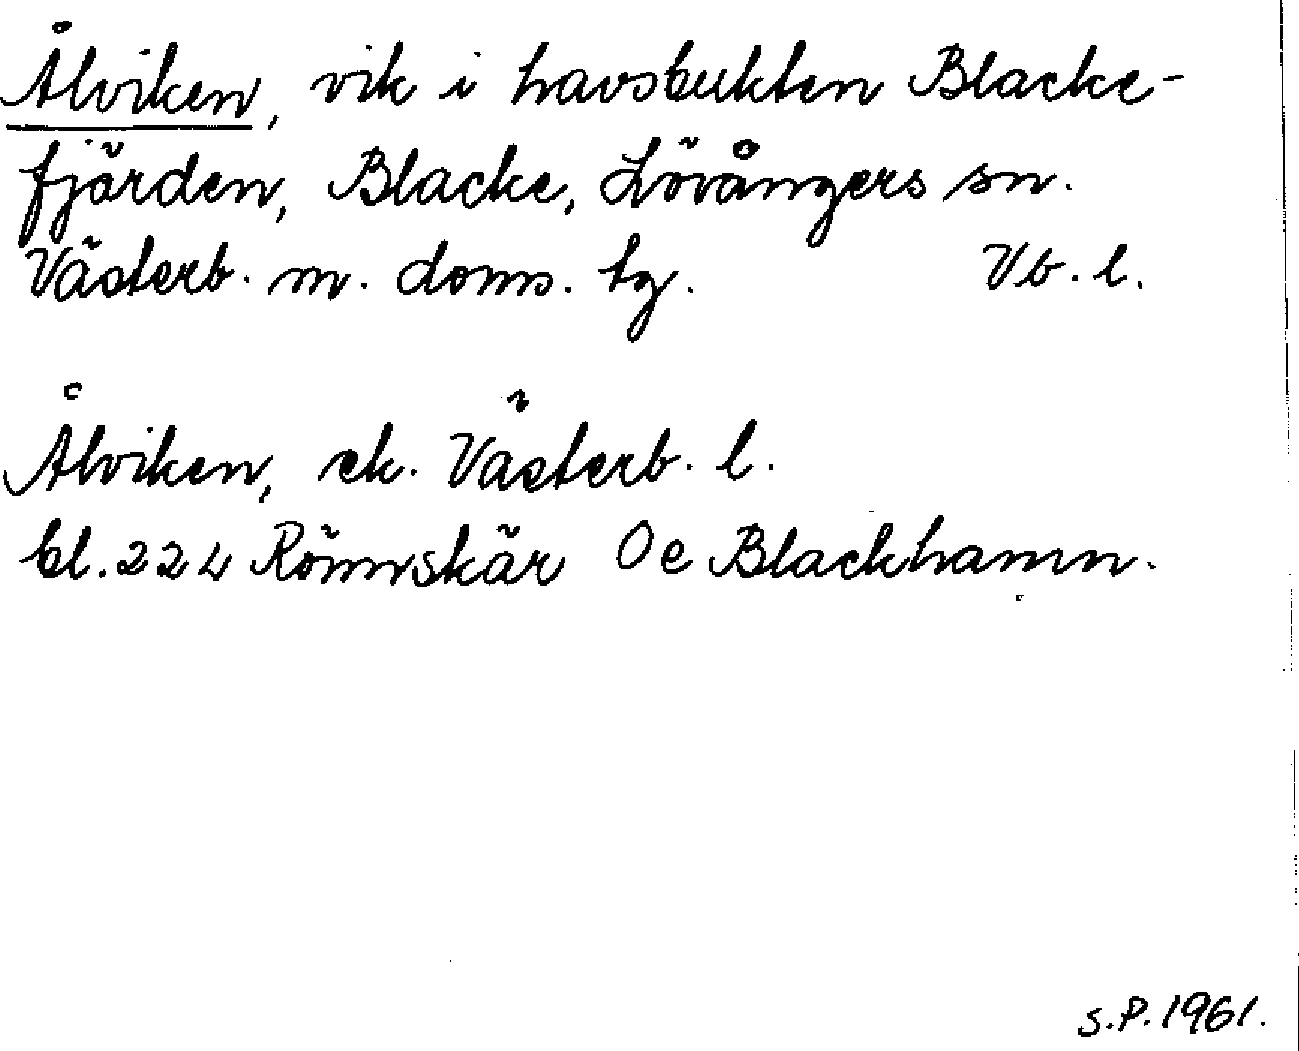 Ålviken, vik i havsbukten Blacke-
fjärden, Blacke, Lövångers sn.
Västerb. m. doms. tg. Vb. l.
Ålviken, ek. Västerb. l.
bl. 224 Rönnskär Oe Blackhamn.
S.P. 1961.